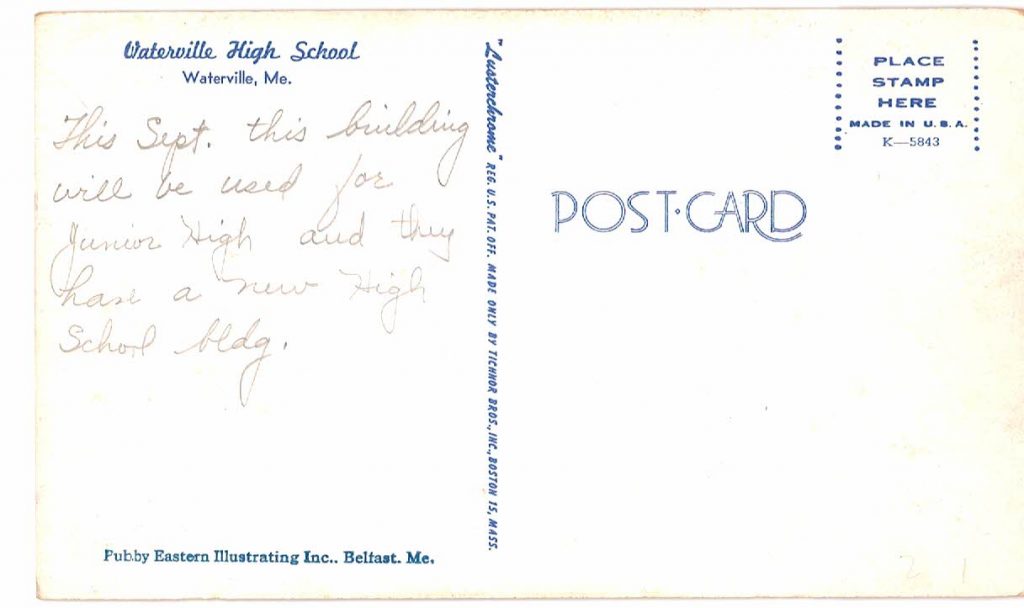 Waterville High School
Waterville, Me.
This Sept. this building
will be used for
Junior High and they
have a new High
School bldg.
Pub.by Eastern Illustrating Inc.. Belfast. Me.
"Lusterchrome" REG. U.S. PAT. OFF. MADE ONLY BY TICHNOR BROS., INC., BOSTON 15, MASS.
PLACE
STAMP
HERE
MADE IN U.S.A.
K—5843
POST·CARD
2 1